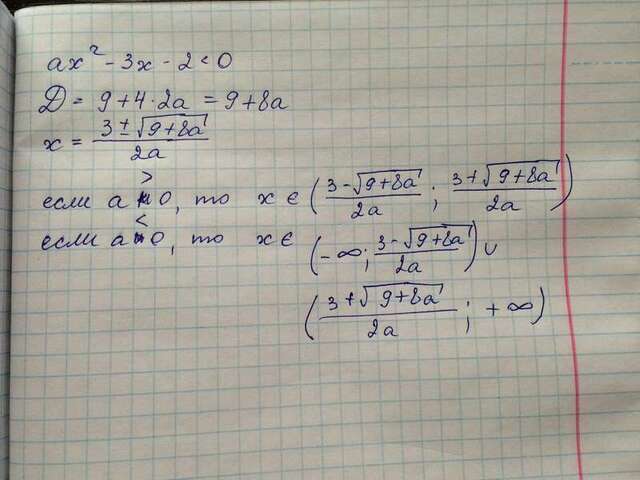 ax² - 3x - 2 < 0
D = 9 + 4 · 2a = 9 + 8a
x = (3 ± √(9 + 8a)) / 2a
если a > 0, то x ∈ ((3 - √(9 + 8a)) / 2a ; (3 + √(9 + 8a)) / 2a)
если a < 0, то x ∈ (-∞; (3 - √(9 + 8a)) / 2a) ∪
((3 + √(9 + 8a)) / 2a ; +∞)